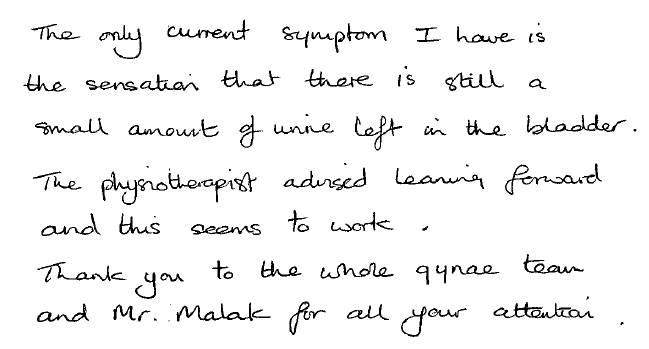 The only current symptom I have is
the sensation that there is still a
small amount of urine left in the bladder.
The physiotherapist advised leaning forward
and this seems to work.
Thank you to the whole gynae team
and Mr. Malak for all your attention.